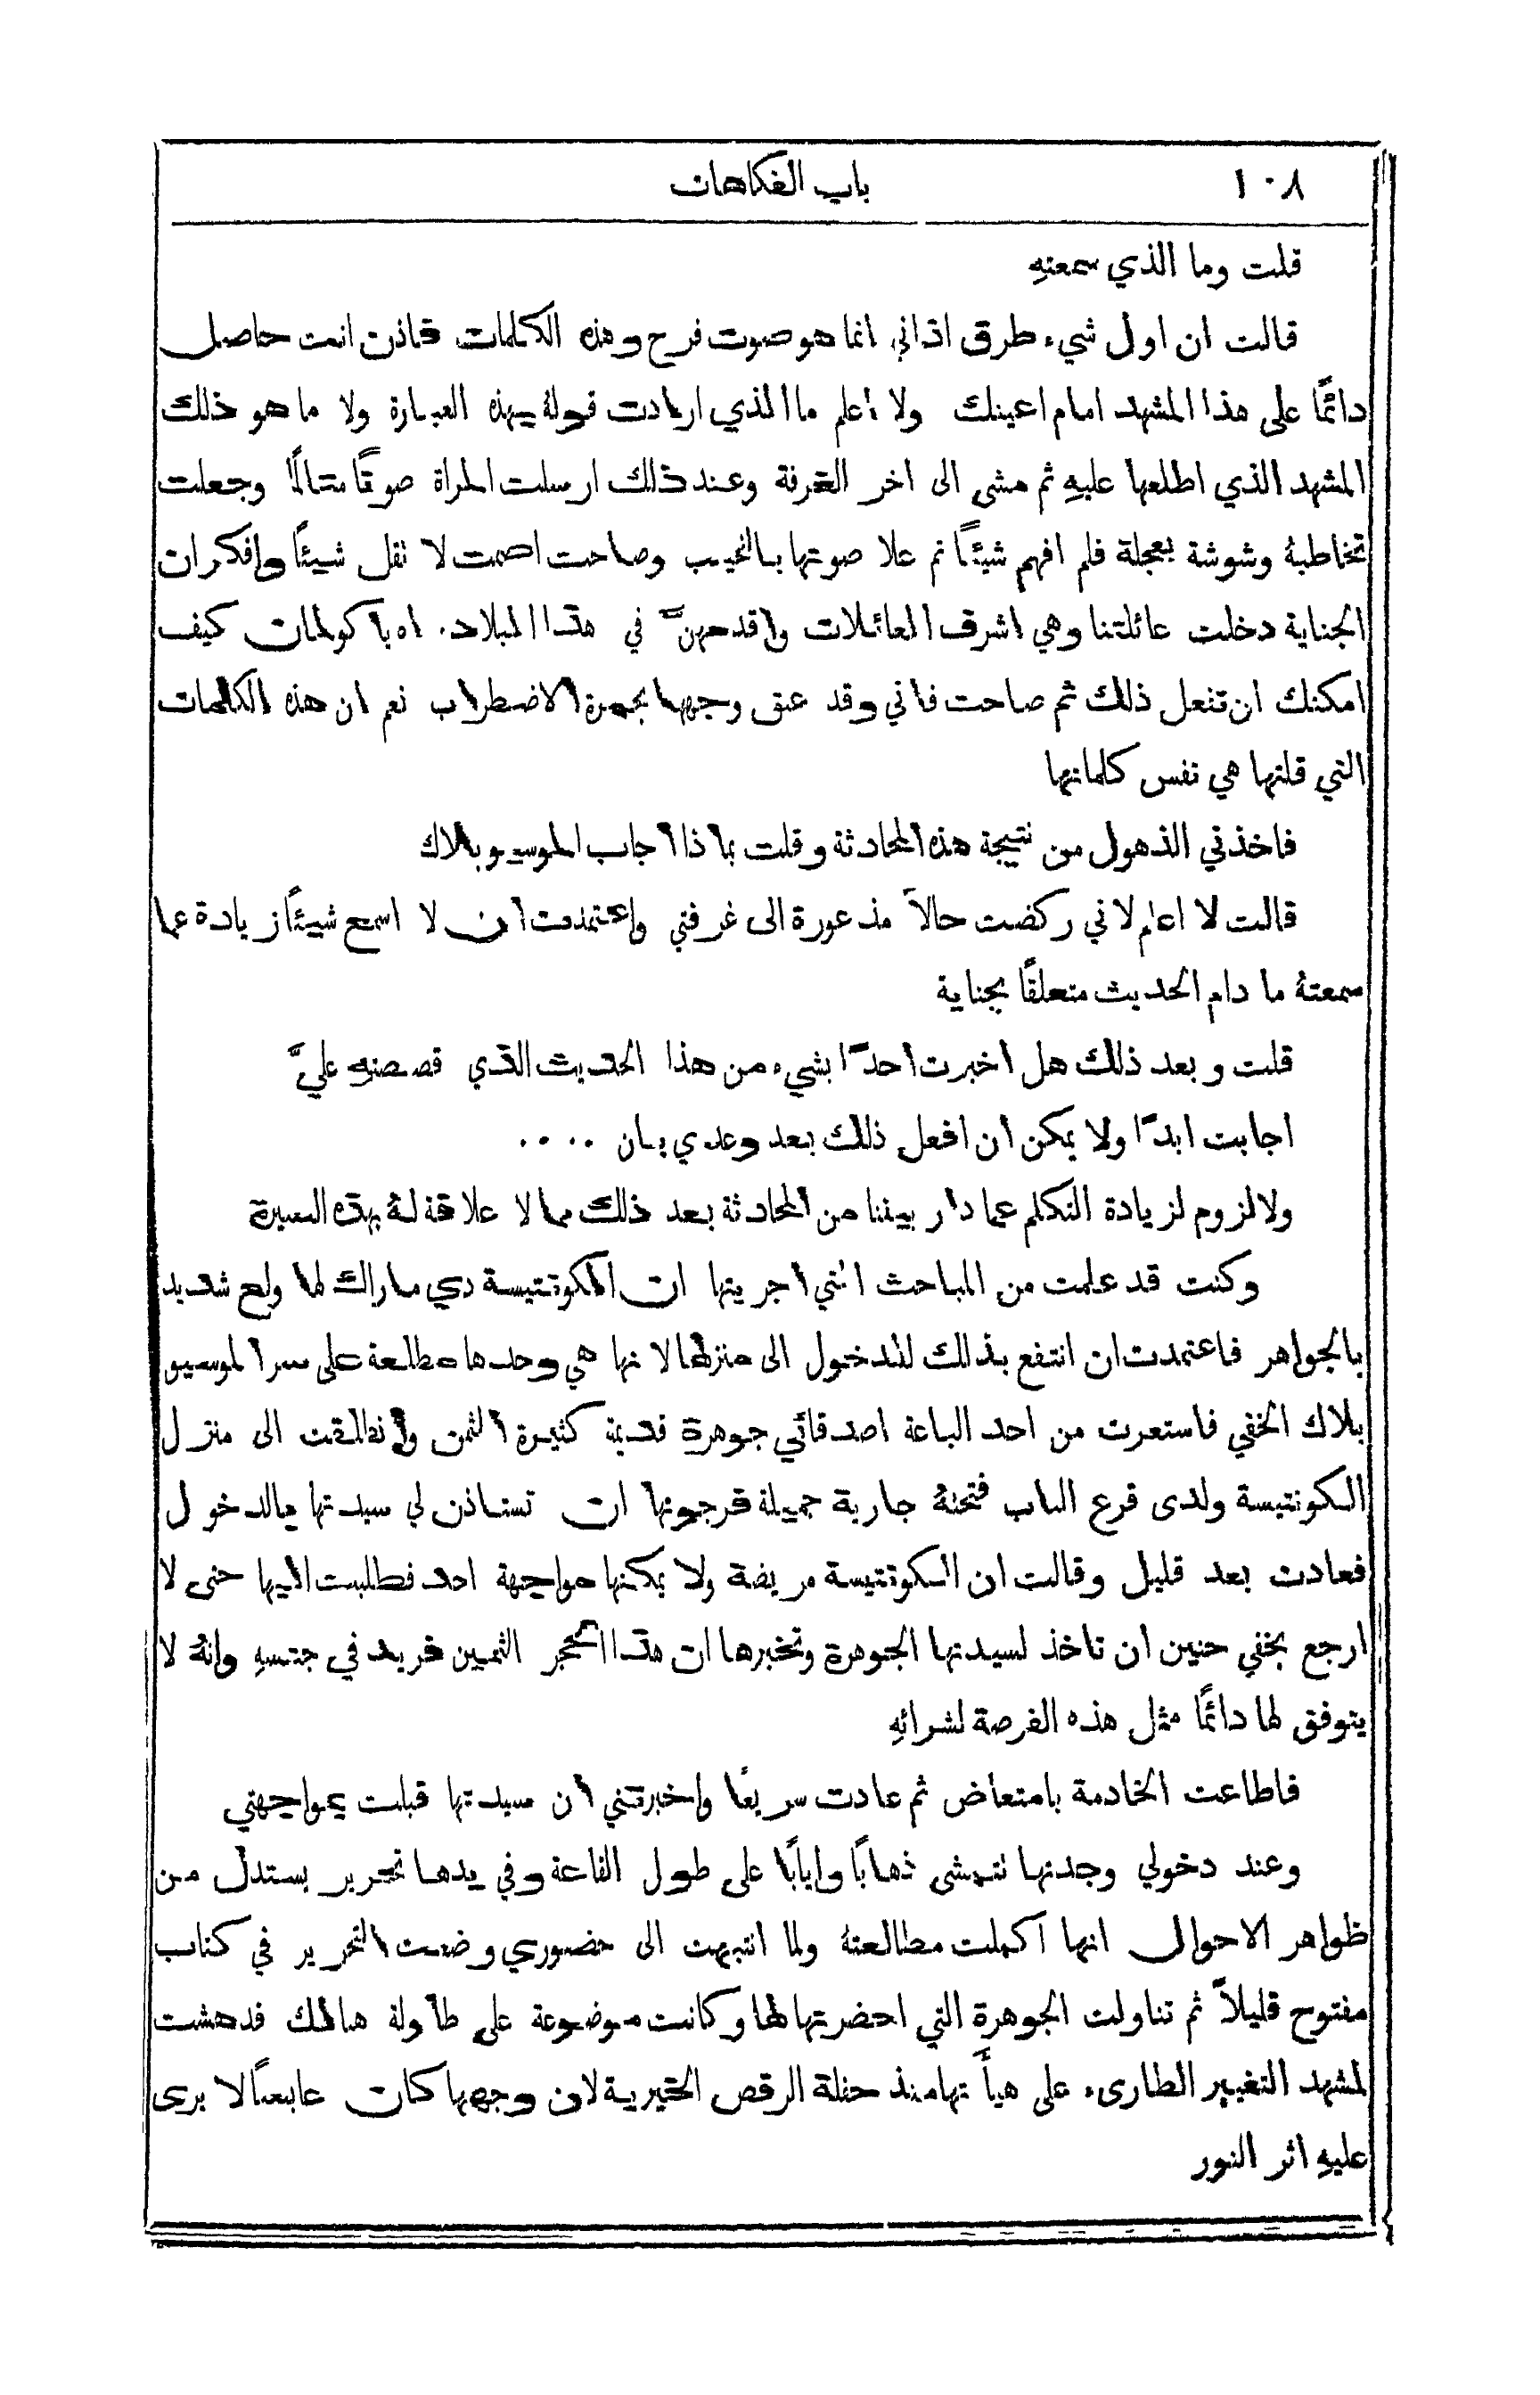 ١٠٨ باب الفكاهات
قلت وما الذي سمعتهِ
قالت ان اول شيء طرق اذاني انما هو صوت فرح وهذه الكلمات فاذن انت حاصل
دائمًا على هذا المشهد امام اعينك ولا اعلم ما الذي ارادت قولهُ بهذه العبارة ولا ما هو ذلك
المشهد الذي اطلعها عليهِ ثم مشى الى اخر الغرفة وعند ذلك ارسلت المراة صوتًا متالمًا وجعلت
تخاطبهُ وشوشة بعجلة فلم افهم شيئًا ثم علا صوتها بالنحيب وصاحت اصمت لا تقل شيئًا وافكر ان
الجناية دخلت عائلتنا وهي اشرف العائلات واقدمهنَّ في هذا البلاد. اه يا كولمان كيف
امكنك ان تفعل ذلك ثم صاحت فاني وقد عبق وجهها بحمرة الاضطراب نعم ان هذه الكلمات
التي قلتها هي نفس كلماتها
فاخذني الذهول من نتيجة هذه المحادثة وقلت بماذا اجاب الموسيو بلاك
قالت لا اعلم لاني ركضت حالاً مذعورة الى غرفتي واعتمدت ان لا اسمع شيئًا زيادة عما
سمعتهُ ما دام الحديث متعلقًا بجناية
قلت وبعد ذلك هل اخبرت احدًا بشيء من هذا الحديث الذي قصصتهِ عليَّ
اجابت ابدًا ولا يمكن ان افعل ذلك بعد وعدي بان ....
ولا لزوم لزيادة التكلم عما دار بيننا من المحادثة بعد ذلك مما لا علاقة لهُ بهذه السيرة
وكنت قد علمت من المباحث التي اجريتها ان الكونتيسة دي ماراك لها ولع شديد
بالجواهر فاعتمدت ان انتفع بذلك للدخول الى منزلها لانها هي وحدها مطلعة على سر الموسيو
بلاك الخفي فاستعرت من احد الباعة اصدقائي جوهرة قديمة كثيرة الثمن وانطلقت الى منزل
الكونتيسة ولدى قرع الباب فتحتهُ جارية جميلة فرجوتها ان تستاذن لي سيدتها بالدخول
فعادت بعد قليل وقالت ان الكونتيسة مريضة ولا يمكنها مواجهة احد فطلبت اليها حتى لا
ارجع بخفي حنين ان تاخذ لسيدتها الجوهرة وتخبرها ان هذا الحجر الثمين فريد في جنسهِ وانهُ لا
يتوفق لها دائمًا مثل هذه الفرصة لشرائهِ
فاطاعت الخادمة بامتعاض ثم عادت سريعًا واخبرتني ان سيدتها قبلت بمواجهتي
وعند دخولي وجدتها تتمشى ذهابًا وايابًا على طول القاعة وفي يدها تحرير يستدل من
ظواهر الاحوال انها اكملت مطالعتهُ ولما انتبهت الى حضوري وضعت التحرير في كتاب
مفتوح قليلاً ثم تناولت الجوهرة التي احضرتها لها وكانت موضوعة على طاولة هنالك فدهشت
لمشهد التغيير الطارىء على هيأتها منذ حفلة الرقص الخيرية لان وجهها كان عابسًا لا يرى
عليهِ اثر النور